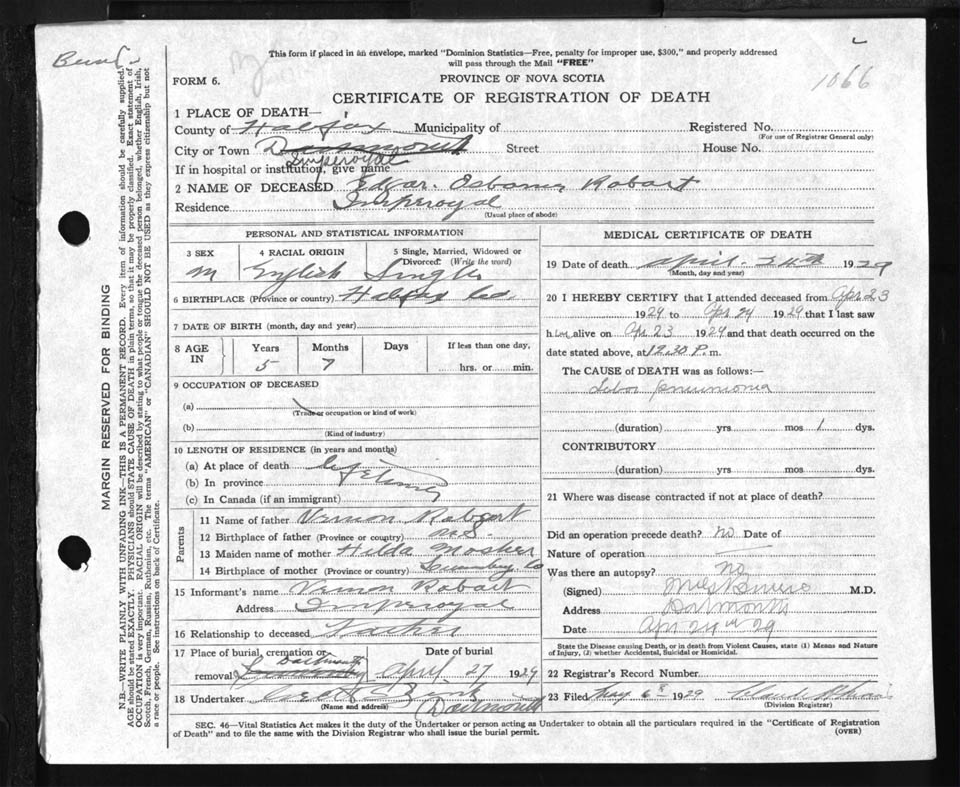 This form if placed in an envelope, marked "Dominion Statistics—Free, penalty for improper use, $300," and properly addressed
will pass through the Mail "FREE"
1066
FORM 6.
PROVINCE OF NOVA SCOTIA
CERTIFICATE OF REGISTRATION OF DEATH
1 PLACE OF DEATH—
County of Halifax Municipality of Registered No.
(For use of Registrar General only)
City or Town Dartmouth Street House No.
Imperoyal
If in hospital or institution, give name
2 NAME OF DECEASED Edgar Osborne Robart
Residence Imperoyal
(Usual place of abode)
PERSONAL AND STATISTICAL INFORMATION
3 SEX 4 RACIAL ORIGIN 5 Single, Married, Widowed or Divorced: (Write the word)
M English Single
6 BIRTHPLACE (Province or country) Halifax Co.
7 DATE OF BIRTH (month, day and year)
8 AGE IN Years Months Days If less than one day,
5 7 hrs. or min.
9 OCCUPATION OF DECEASED
(a)
(Trade or occupation or kind of work)
(b)
(Kind of industry)
10 LENGTH OF RESIDENCE (in years and months)
(a) At place of death
(b) In province Lifetime
(c) In Canada (if an immigrant)
Parents
11 Name of father Vernon Robart
12 Birthplace of father (Province or country) N.S.
13 Maiden name of mother Hilda Mosher
14 Birthplace of mother (Province or country) Co
15 Informant's name Vernon Robart
Address Imperoyal
16 Relationship to deceased Father
17 Place of burial, cremation or removal Dartmouth Date of burial April 27 1929
18 Undertaker Dartmouth
(Name and address)
MEDICAL CERTIFICATE OF DEATH
19 Date of death April 24th 1929
(Month, day and year)
20 I HEREBY CERTIFY that I attended deceased from Apr 23
1929 to Apr 24 1929 that I last saw
him alive on Apr. 23 1929 and that death occurred on
date stated above, at 12.30 P. m.
The CAUSE of DEATH was as follows:—
Lobar pneumonia
(duration) yrs mos 1 dys.
CONTRIBUTORY
(duration) yrs. mos. dys.
21 Where was disease contracted if not at place of death?
Did an operation precede death? No Date of
Nature of operation
Was there an autopsy? No
(Signed) M.D.
Address Dartmouth
Date Apr 24th 29
State the Disease causing Death, or in death from Violent Causes, state (1) Means and Nature
of Injury, (2) whether Accidental, Suicidal or Homicidal.
22 Registrar's Record Number
23 Filed May 6th 1929
(Division Registrar)
SEC. 46—Vital Statistics Act makes it the duty of the Undertaker or person acting as Undertaker to obtain all the particulars required in the "Certificate of Registration
of Death" and to file the same with the Division Registrar who shall issue the burial permit.
(OVER)
MARGIN RESERVED FOR BINDING
N.B.—WRITE PLAINLY WITH UNFADING INK—THIS IS A PERMANENT RECORD. Every item of information should be carefully supplied.
AGE should be stated EXACTLY. PHYSICIANS should STATE CAUSE OF DEATH in plain terms, so that it may be properly classified. Exact statement of
OCCUPATION is very important. RACIAL ORIGIN will be described by stating to what people or tongue the deceased person belonged, whether English, Irish,
Scotch, French, German, Russian, Ruthenian, etc. The terms "AMERICAN" or "CANADIAN" SHOULD NOT BE USED as they express citizenship but not
a race or people. See instructions on back of Certificate.